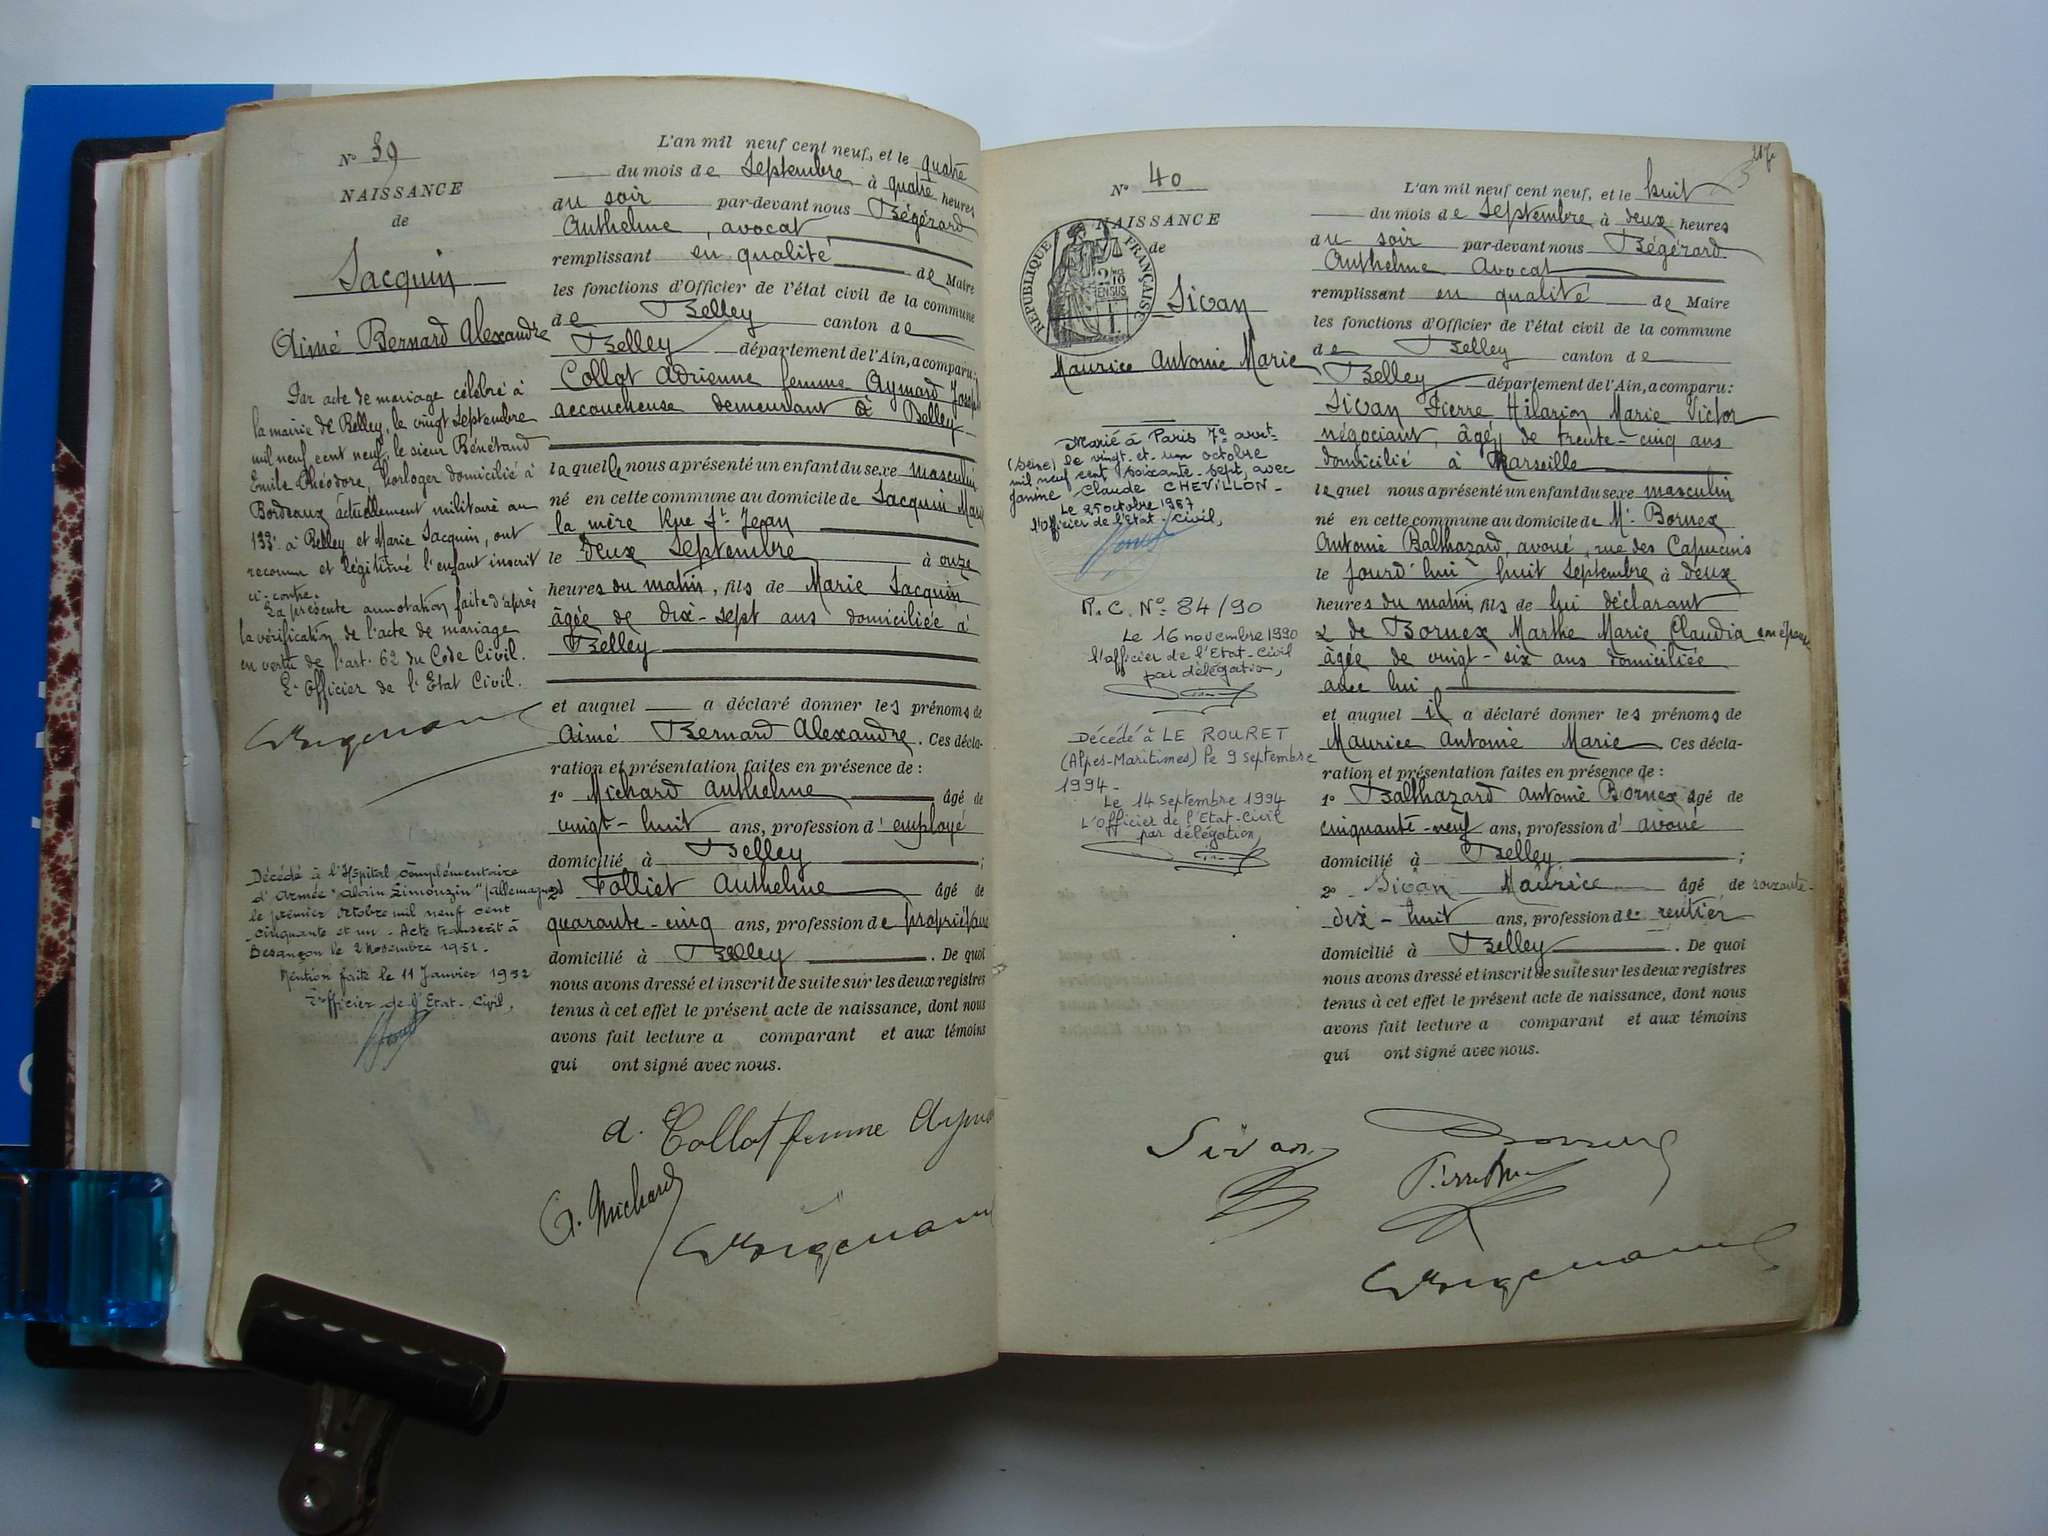 N° 39
NAISSANCE
de
Jacquin
Aimé Bernard Alexandre
Par acte de mariage célébré à
la mairie de Belley, le vingt Septembre
mil neuf cent neuf, le sieur Bénétaud
Emile Théodore, horloger domicilié à
Bordeaux actuellement militaire au
133e à Belley et Marie Jacquin, ont
reconnu et légitimé l'enfant inscrit
ci-contre.
La présente annotation faite d'après
la vérification de l'acte de mariage
en vertu de l'art. 62 du Code Civil.
L'Officier de l'Etat Civil.
Décédé à l'Hôpital complémentaire
d'Armée "Alain Limouzin" (Allemagne)
le premier octobre mil neuf cent
cinquante et un - Acte transcrit à
Besançon le 2 Novembre 1951.
Mention faite le 11 Janvier 1952
l'officier de l'Etat-Civil,
L'an mil neuf cent neuf, et le quatre
du mois de Septembre à quatre heures
du soir par-devant nous Bégérard
Anthelme, avocat
remplissant en qualité de Maire
les fonctions d'Officier de l'état civil de la commune
de Belley canton de
Belley département de l'Ain, a comparu:
Collot Adrienne femme Aymard Joseph
accoucheuse demeurant à Belley
laquelle nous a présenté un enfant du sexe masculin
né en cette commune au domicile de Jacquin Marie
la mère Rue St Jean
le deux Septembre à onze
heures du matin, fils de Marie Jacquin
âgée de dix-sept ans domiciliée à
Belley
et auquel a déclaré donner les prénoms de
Aimé Bernard Alexandre. Ces décla-
ration et présentation faites en présence de :
1° Michard Anthelme âgé de
vingt-huit ans, profession d'employé
domicilié à Belley ;
2° Folliet Anthelme âgé de
quarante-cinq ans, profession de propriétaire
domicilié à Belley . De quoi
nous avons dressé et inscrit de suite sur les deux registres
tenus à cet effet le présent acte de naissance, dont nous
avons fait lecture a comparant et aux témoins
qui ont signé avec nous.
A. Collot femme Aymard
A. Michard
N° 40
NAISSANCE
de
RÉPUBLIQUE FRANÇAISE
Sivan
Maurice Antonie Marie
Marié à Paris 7e arrt-
(Seine) le vingt-et-un octobre
mil neuf cent soixante-sept, avec
Janine Claude CHEVILLON-
Le 25 octobre 1967
l'Officier de l'Etat-Civil,
R.C. N° 84/90
Le 16 novembre 1990
l'officier de l'Etat-Civil
par délégation,
Décédé à LE ROURET
(Alpes-Maritimes) le 9 septembre
1994-
Le 14 Septembre 1994
L'Officier de l'Etat-Civil
par délégation,
L'an mil neuf cent neuf, et le huit
du mois de Septembre à deux heures
du soir par-devant nous Bégérard
Anthelme Avocat
remplissant en qualité de Maire
les fonctions d'Officier de l'état civil de la commune
de Belley canton de
Belley département de l'Ain, a comparu:
Sivan Pierre Hilarion Marie Victor
négociant, âgé de trente-cinq ans
domicilié à Marseille
lequel nous a présenté un enfant du sexe masculin
né en cette commune au domicile de Mr Bornex
Antonie Balthazard, avoué, rue des Capucins
le jourd'hui huit Septembre à deux
heures du matin, fils de lui déclarant
& de Bornex Marthe Marie Claudia son épouse
âgée de vingt-six ans domiciliée
avec lui
et auquel il a déclaré donner les prénoms de
Maurice Antonie Marie. Ces décla-
ration et présentation faites en présence de :
1° Balthazard Antonie Bornex âgé de
cinquante-neuf ans, profession d'avoué
domicilié à Belley ;
2° Sivan Maurice âgé de soixante-
dix-huit ans, profession de rentier
domicilié à Belley . De quoi
nous avons dressé et inscrit de suite sur les deux registres
tenus à cet effet le présent acte de naissance, dont nous
avons fait lecture a comparant et aux témoins
qui ont signé avec nous.
Sivan